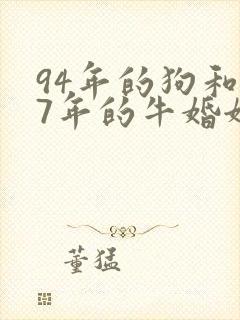 94年的狗和
7年的牛婚
董猛